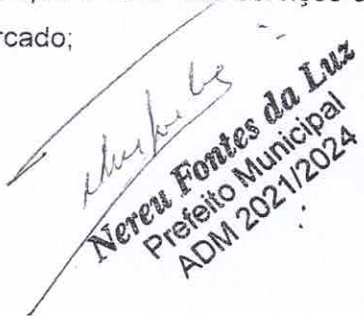 rcado;
Nereu Fontes da Luz
Prefeito Municipal
ADM 2021/2024